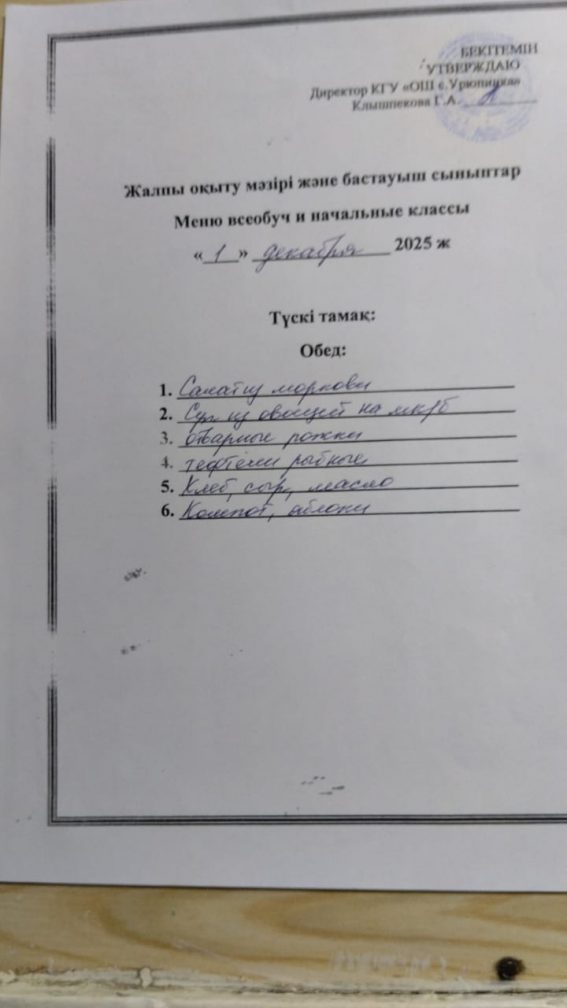 БЕКІТЕМІН
УТВЕРЖДАЮ
Директор КГУ «ОШ с.Урюпинка»
Клышпекова Г.А.
Жалпы оқыту мәзірі және бастауыш сыныптар
Меню всеобуч и начальные классы
«1» декабря 2025 ж
Түскі тамақ:
Обед:
1. Салат из моркови
2. Суп из овощей на мк/б
3. отварные рожки
4. тефтели рыбные
5. Хлеб, сыр, масло
6. Компот, яблоки